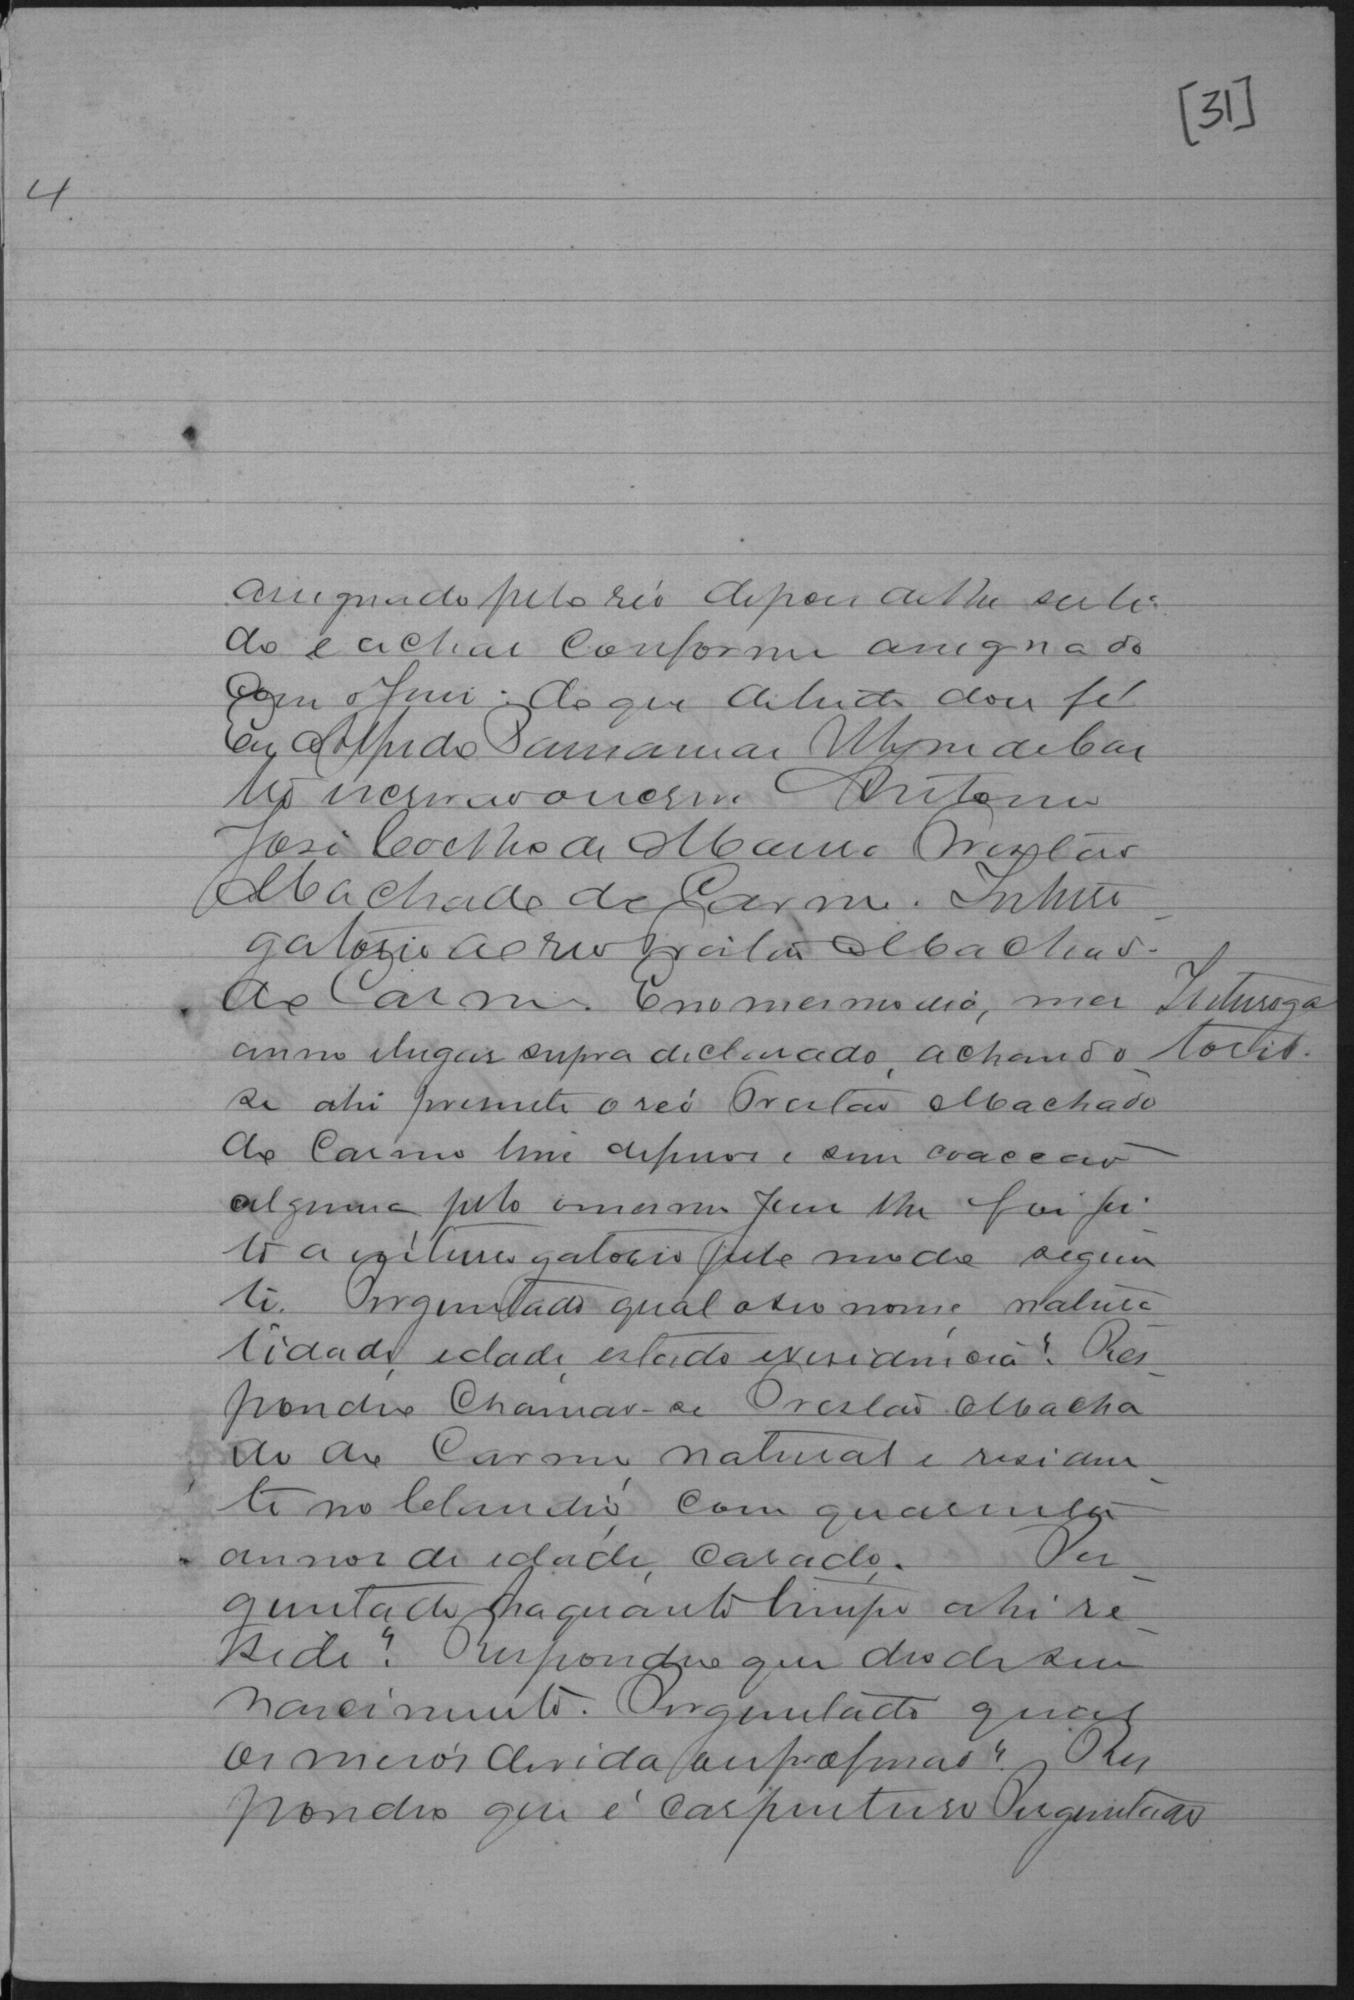 [31]
4
assignado pelo réo depois de lhe ser li-
do e achar conforme assignado
com o Juiz: do que de tudo dou fé
Eu Alfredo
escrivão o escrevi. Antonio
José Coelho de Prestão
Machado do Carmo. Interro-
gatorio ao reo Prestão Machado
do Carmo. E no mesmo dia, mez
Interroga
torio.
anno e lugar supra declarado, achando
se ahi presente o réo Prestão Machado
do Carmo livre de ferros e sem coacção
alguma pelo mesmo Juiz lhe foi fei-
to o interrogatorio pelo modo seguin
te. Perguntado qual o seu nome, natura
lidade, idade, estado e residencia? Res-
pondeo Chamar-se Prestão Macha
do do Carmo, natural e residen-
te no com quarenta
annos de edade, casado. Per-
guntado ha quanto tempo ahi re-
side? Respondeo que desde seu
nascimento. Perguntado quaes
os meios de vida ou profissão? Res
pondeo que é carpinteiro Perguntado